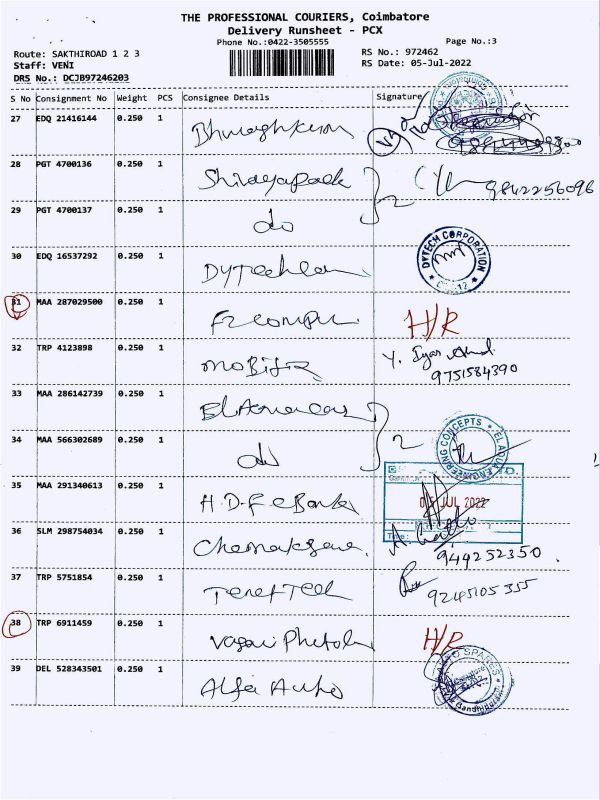 THE PROFESSIONAL COURIERS, Coimbatore
Delivery Runsheet - PCX
Phone No.:0422-3505555 Page No.:3
Route: SAKTHIROAD 1 2 3 RS No.: 972462
Staff: VENI RS Date: 05-Jul-2022
DRS No.: DCJB97246203
S No Consignment No Weight PCS Consignee Details Signature
27 EDQ 21416144 0.250 1
28 PGT 4700136 0.250 1 2 9842256096
29 PGT 4700137 0.250 1 do
30 EDQ 16537292 0.250 1 DYTECH CORPORATION
31 MAA 287029500 0.250 1 H/R
32 TRP 4123898 0.250 1 Y.
9751584390
33 MAA 286142739 0.250 1 2
34 MAA 566302689 0.250 1 do ELAQUA ENGINEERING CONCEPTS
35 MAA 291340613 0.250 1 H.D.F.C Bank 05 JUL 2022
36 SLM 298754034 0.250 1 949252350
37 TRP 5751854 0.250 1 9245105355
38 TRP 6911459 0.250 1 H/R
39 DEL 528343501 0.250 1 Alfa Auto